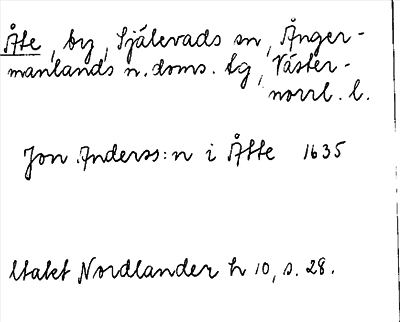 Åse, by, Själevads sn, Ånger-
manlands n. doms. tg, Väster-
norrl. l.
Jon Anderss:n i Åsse 1635
Utakt Nordlander h 10, s. 28.